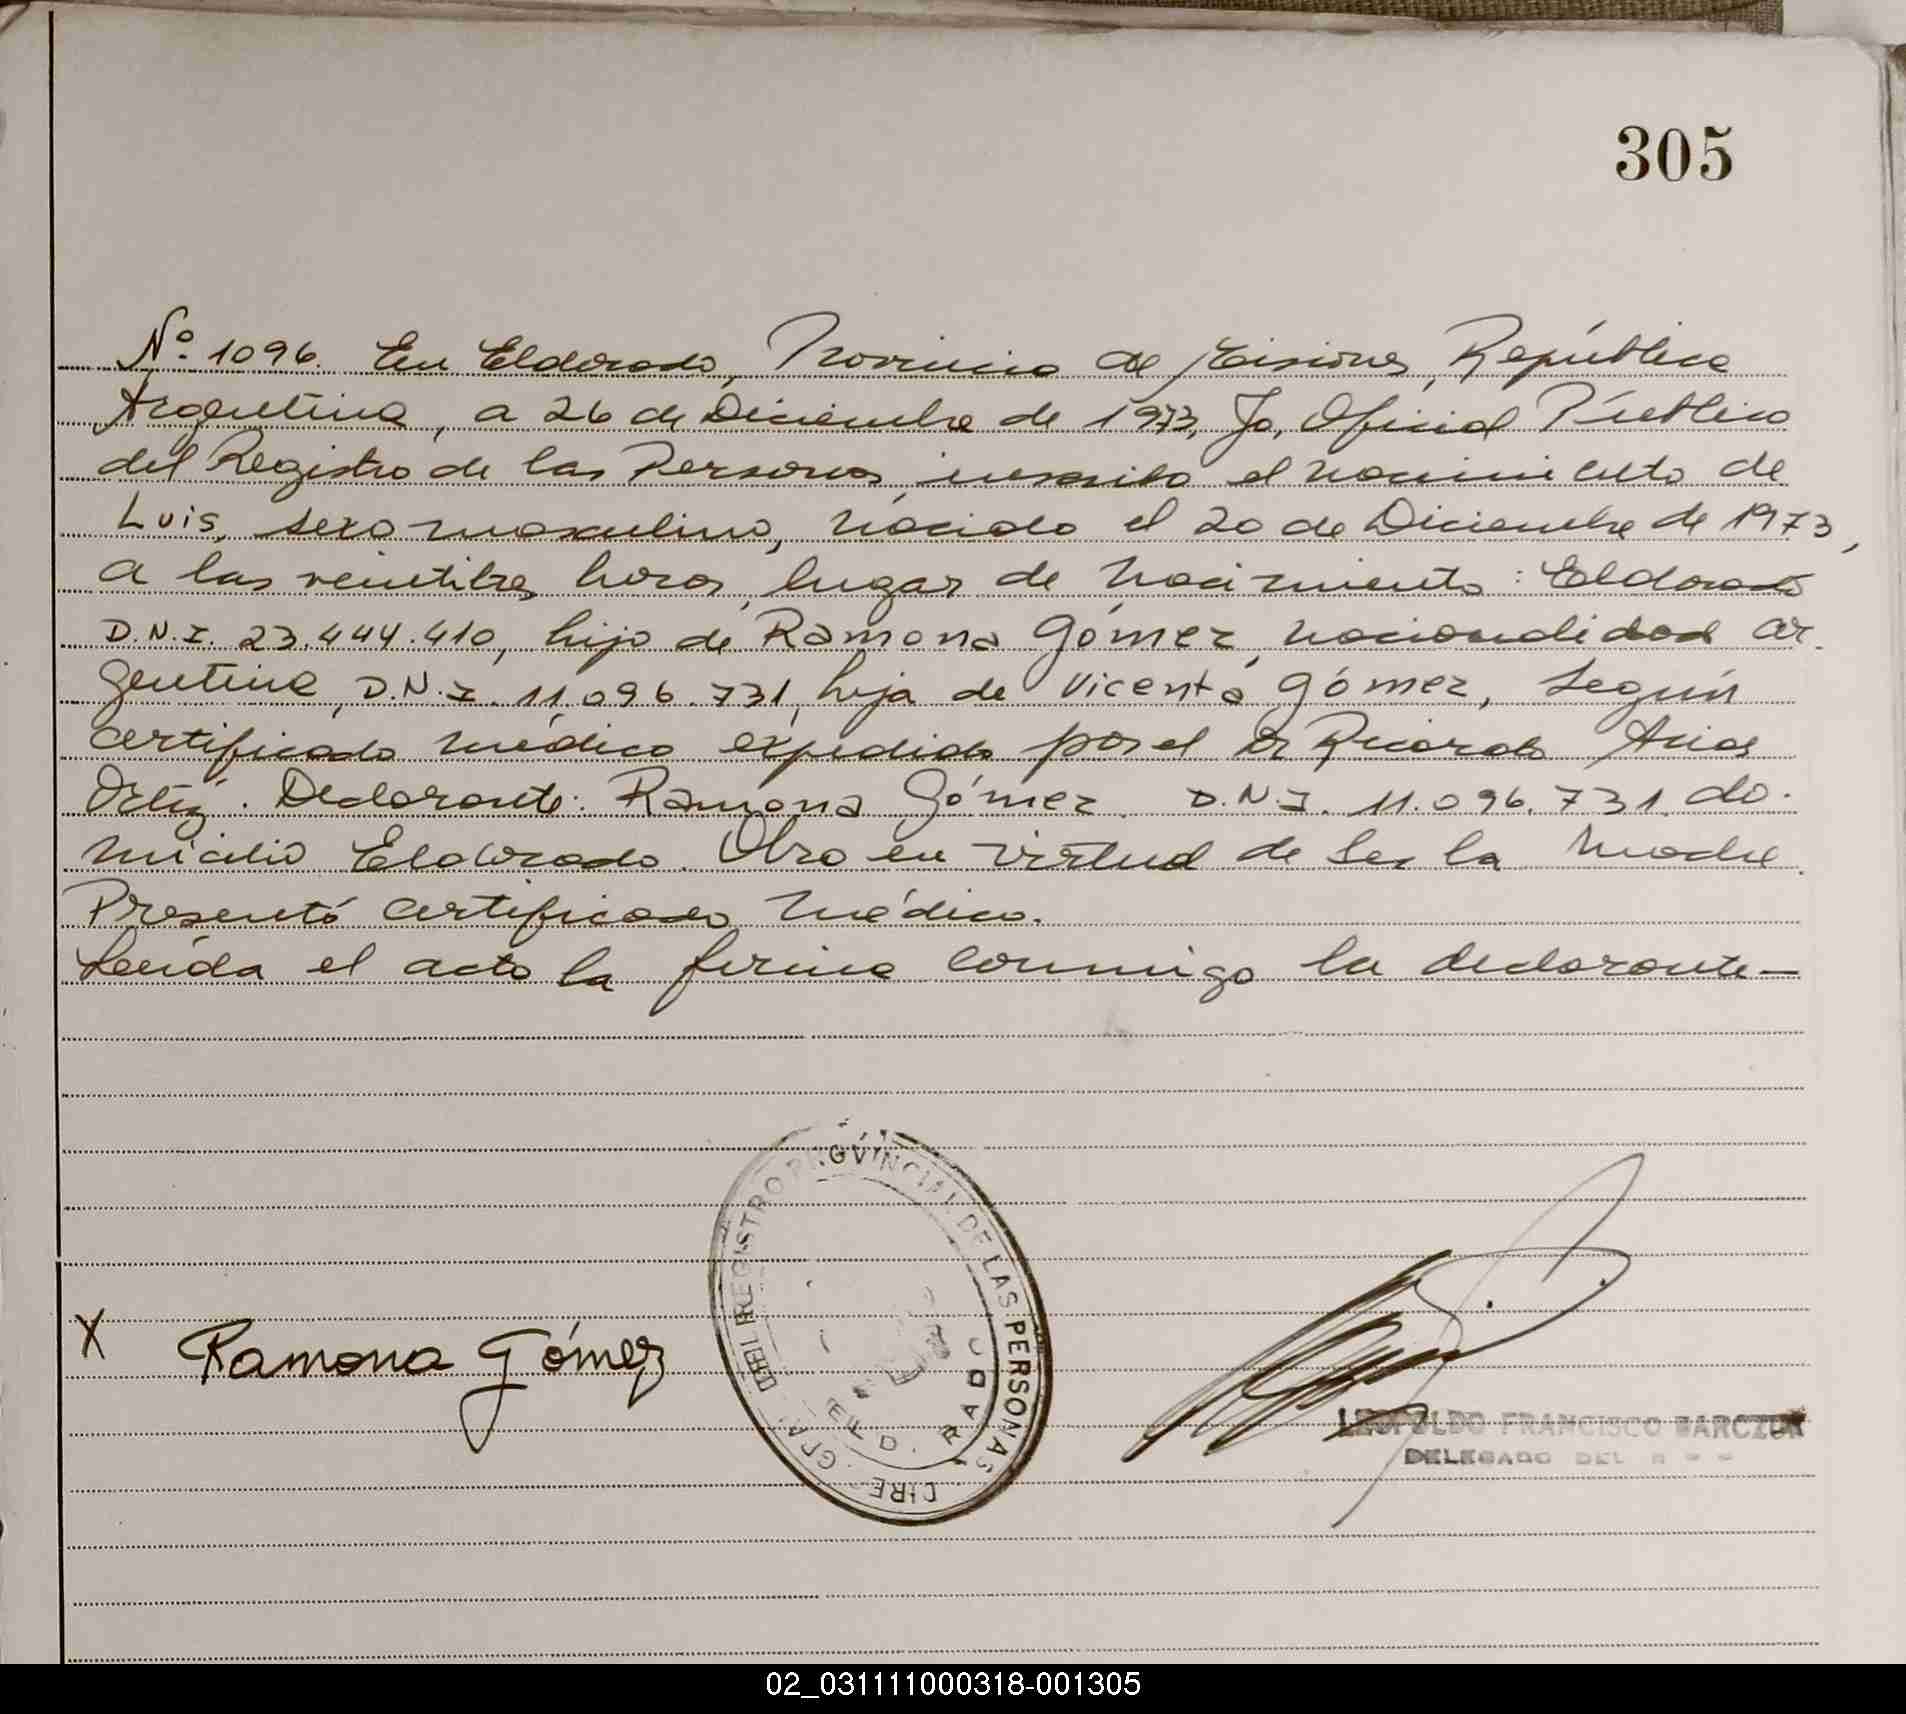 305
Nº 1096. En Eldorado, Provincia de Misiones, República
Argentina, a 26 de Diciembre de 1973, Yo, Oficial Público
del Registro de las Personas, inscribo el nacimiento de
Luis, sexo masculino, nacido el 20 de Diciembre de 1973,
a las veintitres horas, lugar de nacimiento: Eldorado
D.N.I. 23.444.410, hijo de Ramona Gómez, nacionalidad ar-
gentina, D.N.I. 11.096.731, hija de Vicenta Gómez, Según
certificado médico expedido por el Dr Ricardo Arias
Ortiz. Declarante: Ramona Gómez. D.N.I. 11.096.731. do-
micilio Eldorado. Obra en virtud de ser la madre.
Presentó certificado médico.
Leída el acta la firma conmigo la declarante—
X Ramona Gómez
DIRE. GRAL. DEL REGISTRO PROVINCIAL DE LAS PERSONAS
LEOPOLDO FRANCISCO BARCZUK
DELEGADO DEL
02_031111000318-001305